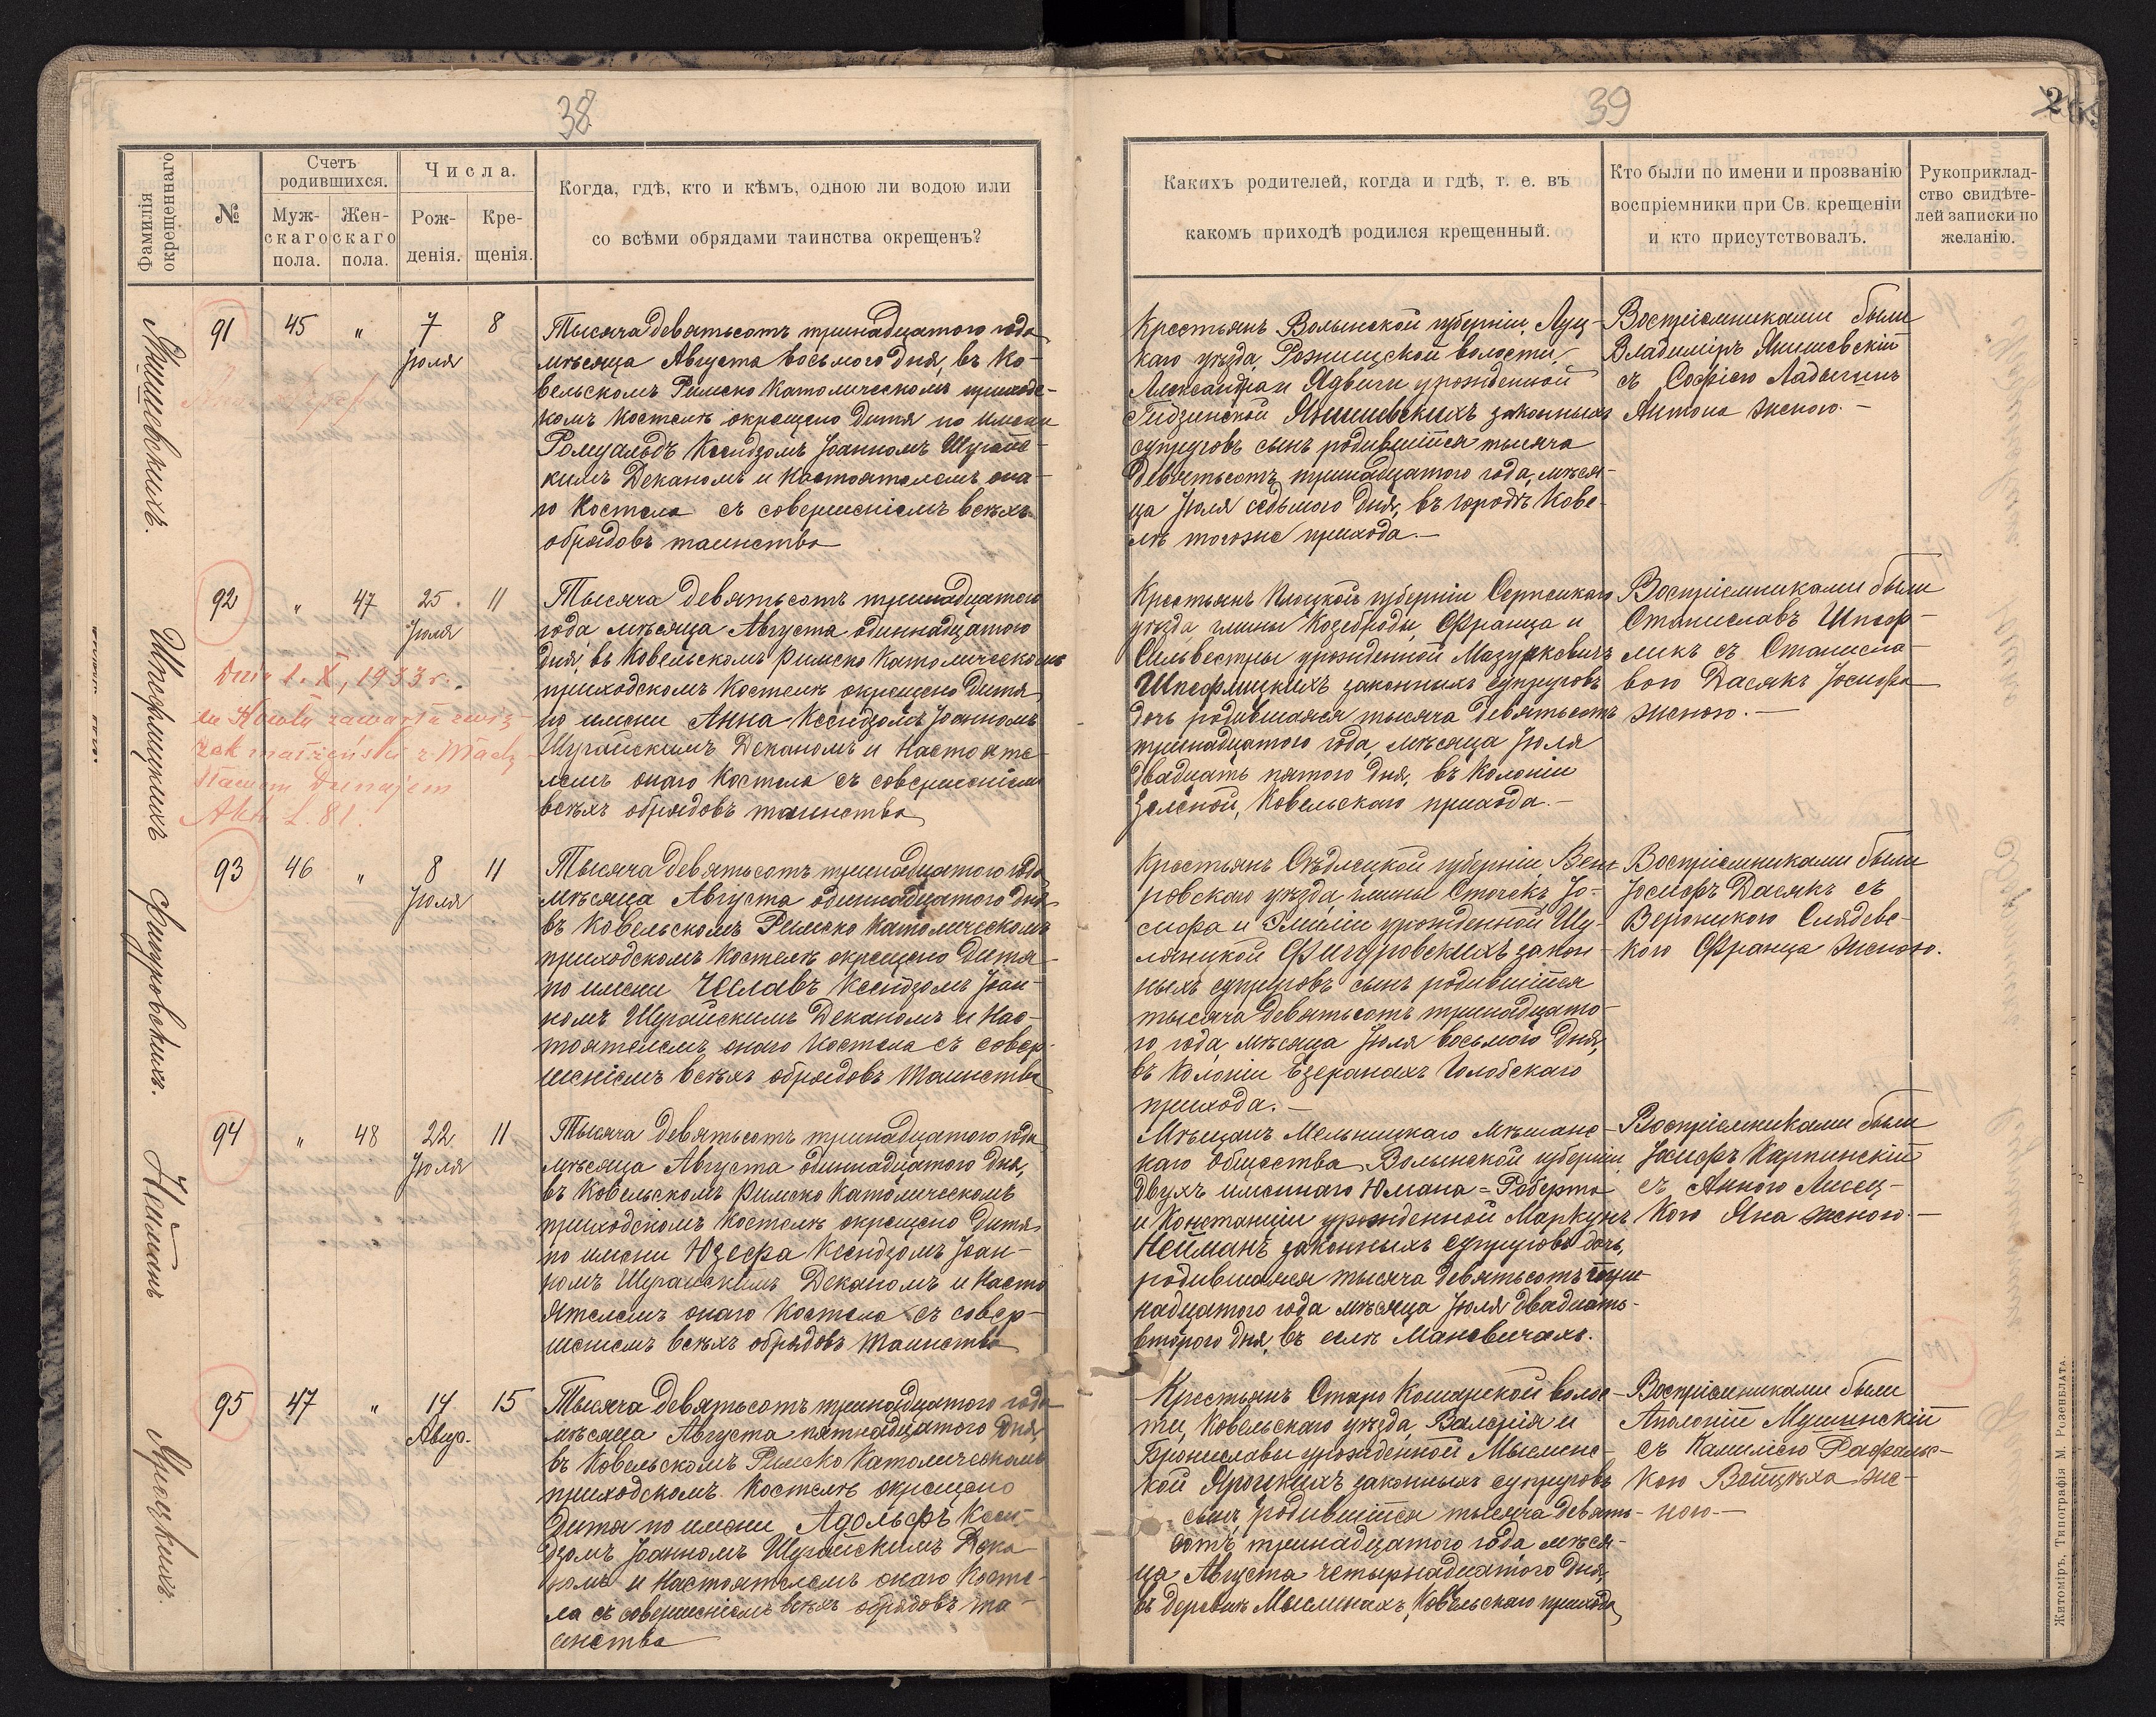 38
Фамилія окрещеннаго
№
Счетъ родившихся.
Мужскаго пола.
Женскаго пола.
Числа.
Рожденія.
Крещенія.
Когда, гдѣ, кто и кѣмъ, одною ли водою или
со всѣми обрядами таинства окрещенъ?
91
45
"
7
Іюля
8
Тысяча девятьсотъ тринадцатого года
мѣсяца Августа восьмого дня, въ Ко-
вельскомъ Римско Католическомъ приходс-
комъ костелѣ окрещено дитя по имени
Ромуальдъ Ксендзомъ Іоанномъ
Деканомъ и Настоятелемъ она-
го Костела съ совершеніемъ всѣхъ
обрядовъ таинства
92
"
47
25
Іюля
11
Dnia 1. X, 1933 r.
Akt L. 81.
Тысяча девятьсотъ тринадцатого
года мѣсяца Августа одиннадцатого
дня, въ Ковельскомъ Римско Католическомъ
приходскомъ костелѣ окрещено дитя
по имени Анна Ксендзомъ Іоанномъ
Шурайскимъ Деканомъ и Настояте-
лемъ онаго Костела съ совершеніемъ
всѣхъ обрядовъ таинства
Фигуровскихъ.
93
46
"
8
Іюля
11
Тысяча девятьсотъ тринадцатого года
мѣсяца Августа одиннадцатого дня
въ Ковельскомъ Римско Католическомъ
приходскомъ костелѣ окрещено дитя
по имени Чеславъ Ксендзомъ Іоан-
номъ Шурайскимъ Деканомъ и Нас-
тоятелемъ онаго Костела съ совер-
шеніемъ всѣхъ обрядовъ таинства
Нейманъ
94
"
48
22
Іюля
11
Тысяча девятьсотъ тринадцатого года
мѣсяца Августа одиннадцатого дня,
въ Ковельскомъ Римско Католическомъ
приходскомъ костелѣ окрещено дитя
по имени Юзефа Ксендзомъ Іоан-
номъ Шурайскимъ Деканомъ и Насто
ятелемъ онаго Костела съ совер-
шеніемъ всѣхъ обрядовъ таинства
95
47
"
14
Авгус.
15
Тысяча девятьсотъ тринадцатого года
мѣсяца Августа пятнадцатого дня,
въ Ковельскомъ Римско Католическомъ
приходскомъ Костелѣ окрещено
дитя по имени Адольфъ Ксен-
дзомъ Іоанномъ Шурайскимъ Дека-
номъ и Настоятелемъ онаго Косте-
ла съ совершеніемъ всѣхъ обрядовъ та-
инства
39
Какихъ родителей, когда и гдѣ, т. е. въ
какомъ приходѣ родился крещенный.
Кто были по имени и прозванію
воспріемники при Св. крещеніи
и кто присутствовалъ.
Рукоприклад-
ство свидѣте-
лей записки по
желанію.
Крестьянъ Волынской губерніи, Луц-
каго уѣзда, Рожищской волости,
Александра и Ядвиги урожденной
Янишевскихъ законныхъ
супруговъ сынъ родившійся тысяча
девятьсотъ тринадцатого года, мѣся-
ца Іюля седьмого дня, въ городѣ Кове-
лѣ тогоже прихода.—
Воспріемниками были
Владиміръ Янишевскій
съ Софіею Ладыгинъ
Антона женою.—
Крестьянъ Плоцкой губерніи Серпскаго
уѣзда гмины Козеброды, Франца и
Сильвестры урожденной Мазуркевичъ
законныхъ супруговъ
дочь родившаяся тысяча девятьсотъ
тринадцатого года, мѣсяца Іюля
двадцать пятого дня, въ Колоніи
Зеленой, Ковельскаго прихода.—
Воспріемниками были
Станиславъ
съ Станисла-
вою Дасякъ Іосифа
женою.—
Крестьянъ Сѣдлецкой губерніи, Вен-
ровскаго уѣзда гмины Сточекъ, Іо-
сифа и Эмиліи урожденной
Фигуровскихъ закон-
ныхъ супруговъ сынъ родившійся
тысяча девятьсотъ тринадцато-
го года, мѣсяца Іюля восьмого дня,
въ Колоніи Езеранахъ Голобскаго
прихода.—
Воспріемниками были
Іосифъ Дасякъ съ
Вероникою
Франца женою.
Мѣщанъ Мельницкаго Мѣщанс-
каго Общества Волынской губерніи
двухъ именнаго Юліана-Роберта
и Констанціи урожденной Маркунъ
Нейманъ законныхъ супруговъ дочь,
родившаяся тысяча девятьсотъ три-
надцатого года мѣсяца Іюля двадцать-
второго дня, въ селѣ Маневичахъ.
Воспріемниками были
Іосифъ Карпинскій
съ Анною Лисец-
кою Яна женою.—
Крестьянъ Старо Кошарской волос-
ти, Ковельскаго уѣзда, Валерія и
Брониславы урожденной
законныхъ супруговъ
сынъ родившійся тысяча девять-
сотъ тринадцатого года мѣся-
ца Августа четырнадцатого дня,
въ деревнѣ Мыслинахъ, Ковельскаго прихода
Воспріемниками были
Аполоній Мушинскій
съ Камиліею Рафаль-
кою Войцѣха же-
ною.—
Житоміръ, Типографія М. Розенблата.